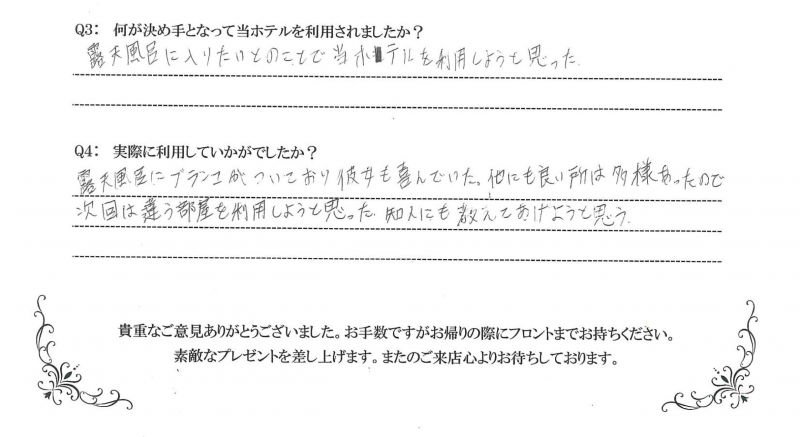 Q3： 何が決め手となって当ホテルを利用されましたか？
露天風呂に入りたいとのことで当ホテルを利用しようと思った.
Q4： 実際に利用していかがでしたか？
露天風呂にブランコがついており彼女も喜んでいた。他にも良い所は多様あったので
次回は違う部屋を利用しようと思った. 知人にも教えてあげようと思う.
貴重なご意見ありがとうございました。お手数ですがお帰りの際にフロントまでお持ちください。
素敵なプレゼントを差し上げます。またのご来店心よりお待ちしております。